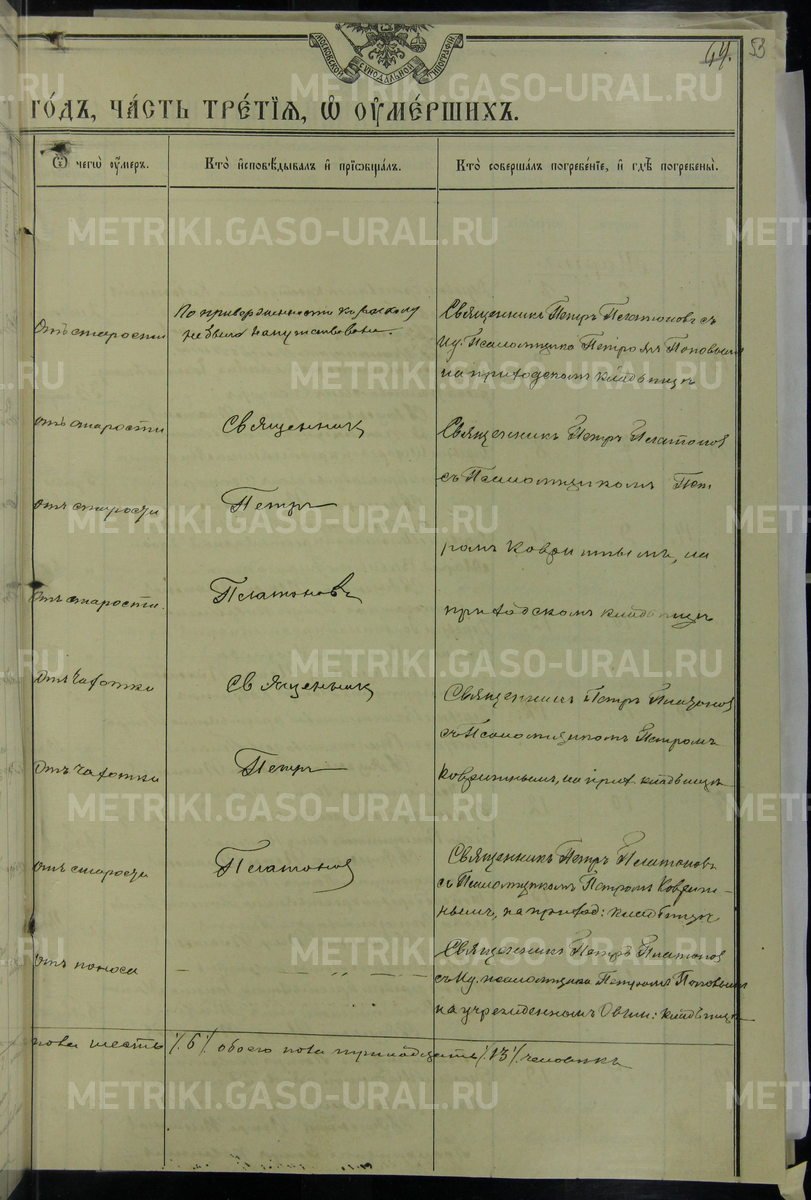 МОСКОВСКОЙ СѴНОДАЛЬНОЙ ТИПОГРАФІИ
64. 53
ГО́ДЪ, ЧА́СТЬ ТРЕ́ТІѦ, Ѡ҆ ОУ҆МЕ́РШИХЪ.
Ѿ чегѡ̀ оу҆́меръ.
Кто̀ и҆сповѣ́дывалъ и҆ прїѡбща́лъ.
Кто̀ соверша́лъ погребе́нїе, и҆ гдѣ̀ погребены̀.
отъ старости
По приверженности къ расколу
не было напутствована.
Священникъ Петръ Платоновъ съ
И.д. Псаломщика Петромъ Поповымъ
на приходскомъ кладбищѣ
отъ старости
Священникъ
Священникъ Петръ Платонов
съ Псаломщикомъ Пет
отъ старости
Петръ
ромъ Ковригиным, на
отъ старости
Платоновъ
приходскомъ кладбищѣ
отъ чахотки
Священникъ
Священникъ Петръ Платонов
съ Псаломщикомъ Петромъ
отъ чахотки
Петръ
Ковригинымъ, на прих. кладбищѣ
отъ старости
Платонов
Священникъ Петръ Платоновъ
съ Псаломщикомъ Петромъ Ковриги-
нымъ, на приход: кладбищѣ
отъ поноса
— — — „ — — —
Священникъ Петръ Платонов
съ И.д. псаломщика Петромъ Поповымъ
на учрежденномъ кладбищѣ
пола шесть /.6/. обоего пола тринадцать /.13/. человѣкъ
METRIKI.GASO-URAL.RU